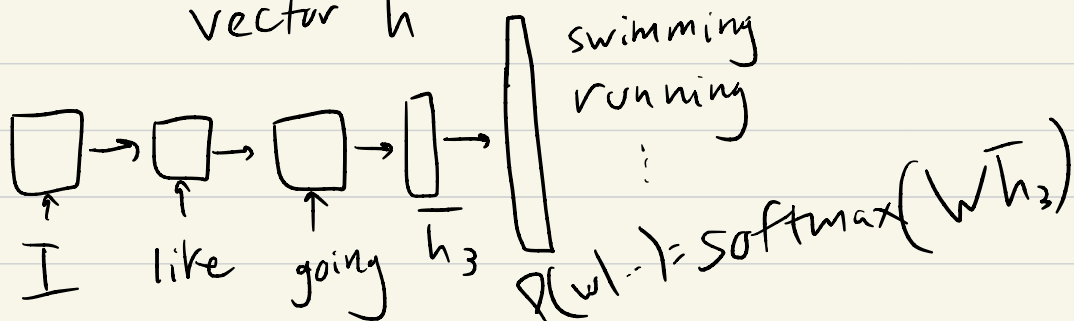 vector h
swimming
running
⋮
I like going h̄₃
P(w|...) = softmax(Wh̄₃)